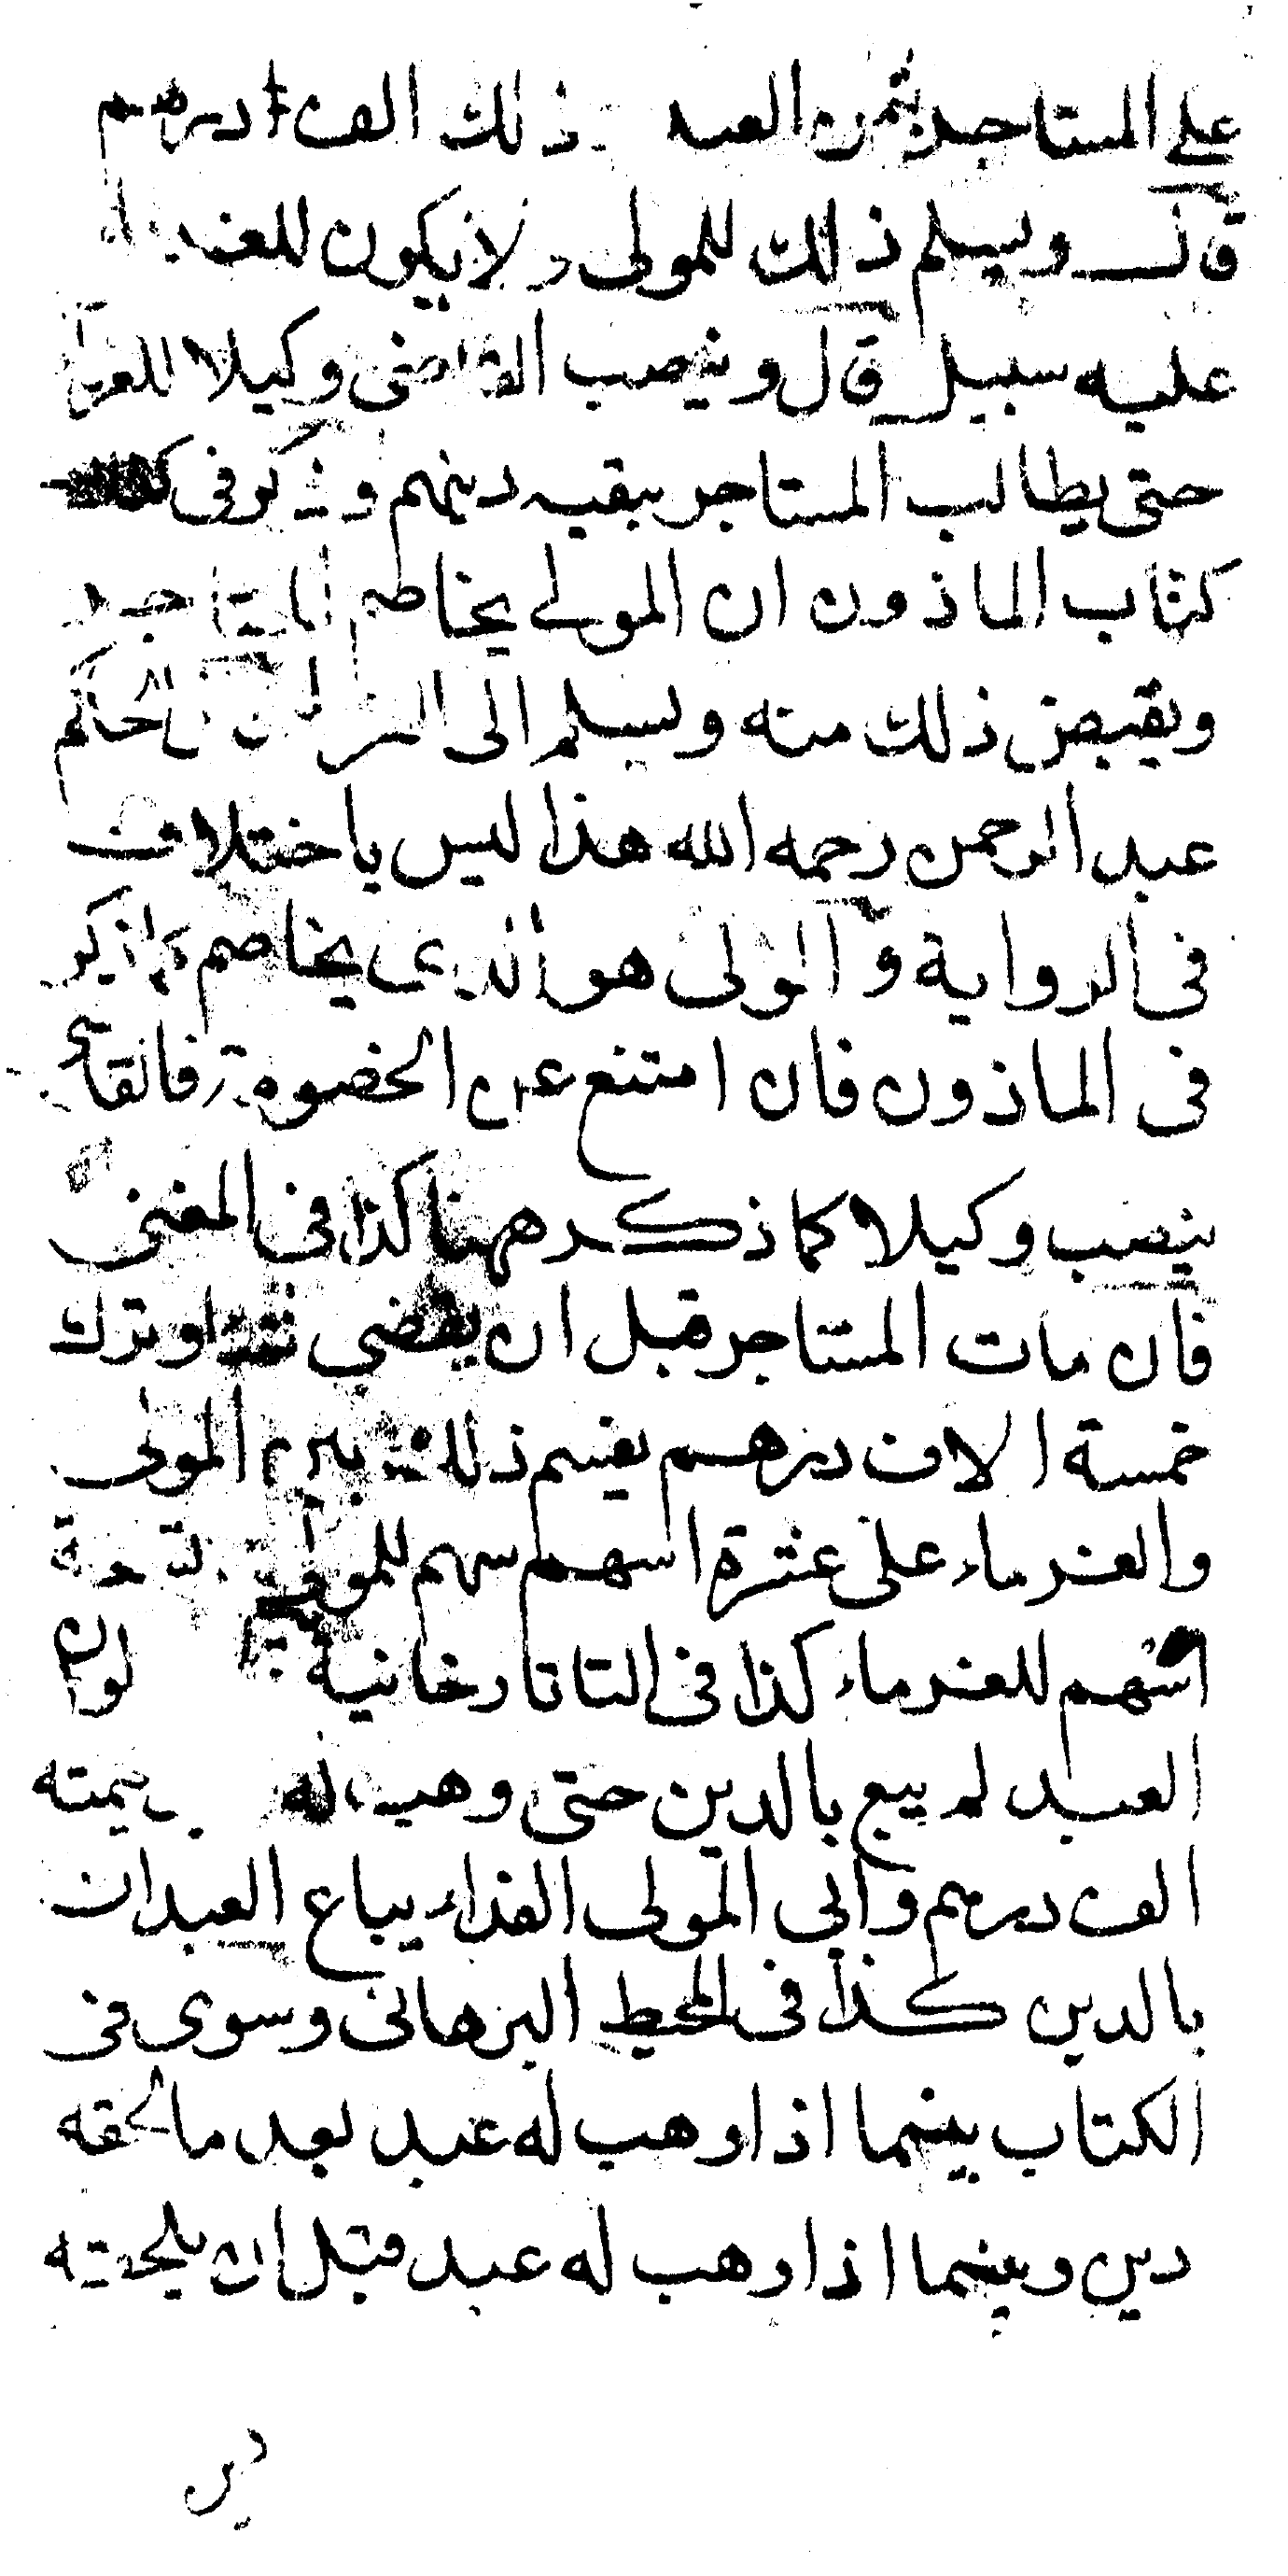 على المستاجر بثمن العبد وذلك الف درهم
قال ويسلم ذلك للمولى ولا يكون للغرماء
عليه سبيل قال وينصب القاضى وكيلا للغرماء
حتى يطالب المستاجر ببقيه دينهم وذكر فى
كتاب الماذون ان المولى يخاصم المستاجر
ويقبض ذلك منه ويسلم الى الغرماء قال الحاكم
عبد الرحمن رحمه الله هذا ليس باختلاف
فى الرواية والمولى هو الذى يخاصم كما ذكر
فى الماذون فان امتنع عن الخصومة فالقاضى
ينصب وكيلا كما ذكر ههنا كذا فى المغنى
فان مات المستاجر قبل ان يقضى شيئا وترك
خمسة الاف درهم يقسم ذلك بين المولى
والغرماء على عشرة اسهم سهم للمولى وتسعة
اسهم للغرماء كذا فى التاتارخانية ولو ان
العبد لم يبع بالدين حتى وهب له قيمته
الف درهم وابى المولى الفداء يباع العبدان
بالدين كذا فى المحيط البرهانى وسوى فى
الكتاب بينما اذا وهب له عبد بعد ما لحقه
دين وبينما اذا وهب له عبد قبل ان يلحقه
دين